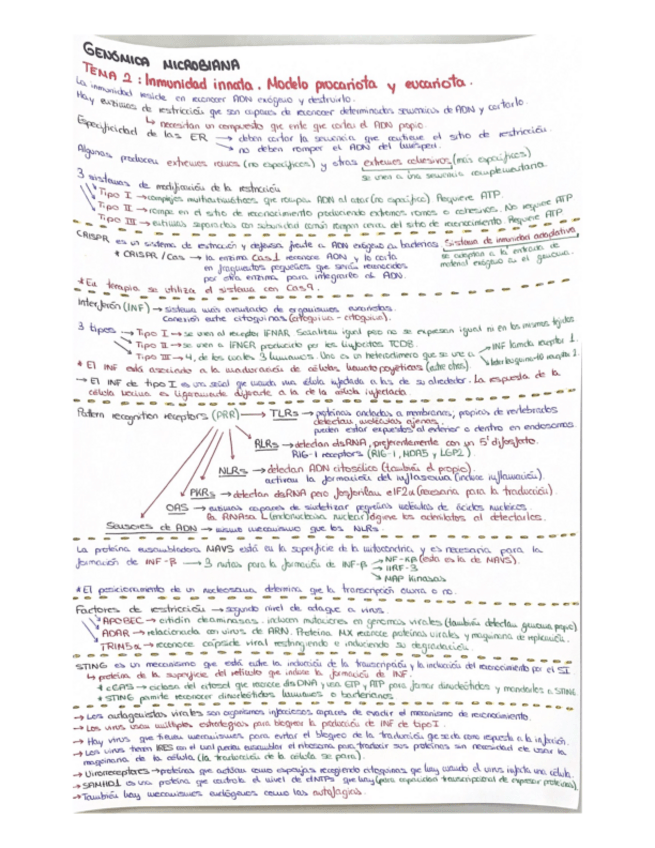 GENÓMICA MICROBIANA
TEMA 2: Inmunidad innata. Modelo procariota y eucariota.
La inmunidad reside en reconocer ADN exógeno y destruirlo.
Hay enzimas de restricción que son capaces de reconocer determinadas secuencias de ADN y cortarlo.
↳ necesitan un compuesto que evite que corten el ADN propio.
Especificidad de las ER → deben cortar la secuencia que contiene el sitio de restricción.
→ no deben romper el ADN del huésped.
Algunas producen extremos romos (no específicos) y otras extremos cohesivos (más específicos)
se unen a una secuencia complementaria.
3 sistemas de modificación de la restricción
Tipo I → complejos multienzimáticos que rompen ADN al azar (no específico). Requiere ATP.
Tipo II → rompe en el sitio de reconocimiento produciendo extremos romos o cohesivos. No requiere ATP
Tipo III → enzimas separadas con subunidad común rompen cerca del sitio de reconocimiento. Requiere ATP.
CRISPR es un sistema de restricción y defensa frente a ADN exógeno a bacterias. Sistema de inmunidad adaptativa,
* CRISPR/Cas → la enzima Cas1 reconoce ADN y lo corta
se adaptan a la entrada de
en fragmentos pequeños que serán reconocidos
material exógeno en el genoma.
por otra enzima para integrarlo al ADN.
* En terapia se utiliza el sistema con Cas9.
Interferón (INF) → sistema más avanzado de organismos eucariotas.
Conexión entre citoquinas (citoquina - citoquina).
3 tipos → Tipo I → se unen al receptor IFNAR. Señalizan igual pero no se expresan igual ni en los mismos tejidos
Tipo II → se unen a IFNGR producido por los linfocitos TCD8.
→ INF lambda receptor 1.
Tipo III → 4, de los cuales 3 humanos. Una es un heterodímero que se une a
→ Interleuquina-10 receptor 2.
* El INF está asociado a la maduración de células hematopoyéticas (entre otras).
→ El INF de tipo I es una señal que manda una célula infectada a las de su alrededor. La respuesta de la
célula vecina es ligeramente diferente a la de la célula infectada.
Pattern recognition receptors (PRR) → TLRs → proteínas ancladas a membranas, propias de vertebrados
detectan moléculas ajenas.
pueden estar expuestos al exterior o dentro en endosomas.
RLRs → detectan dsRNA, preferentemente con un 5' difosfato.
RIG-1 receptors (RIG-1, MDA5 y LGP2).
NLRs → detectan ADN citosólico (también el propio).
activan la formación del inflasoma (induce inflamación).
PKRs → detectan dsRNA pero fosforilan eIF2α (necesaria para la traducción).
OAS → enzimas capaces de sintetizar pequeñas moléculas de ácidos nucleicos.
La RNAsa L (endonucleasa nuclear) digiere los adenilatos al detectarlos.
Sensores de ADN → mismo mecanismo que los NLRs.
La proteína ensambladora MAVS está en la superficie de la mitocondria y es necesaria para la
formación de INF-β → 3 rutas para la formación de INF-β → NF-κβ (esta es la de MAVS).
→ IRF-3
→ MAP kinasas
* El posicionamiento de un nucleosoma determina que la transcripción ocurra o no.
Factores de restricción → segundo nivel de ataque a virus.
APOBEC → citidin deaminasas. inducen mutaciones en genomas virales (también detectan genoma propio)
ADAR → relacionada con virus de ARN. Proteína MX reconoce proteínas virales y maquinaria de replicación.
TRIM5α → reconoce cápside viral restringiendo e induciendo su degradación.
STING es un mecanismo que está entre la inducción de la transcripción y la inducción del reconocimiento por el SI.
↳ proteína de la superficie del retículo que induce la formación de INF.
* cGAS → ciclasa del citosol que reconoce dsDNA y usa GTP y ATP para formar dinucleótidos y mandarlos a STING
* STING permite reconocer dinucleótidos humanos o bacterianos
→ Los antagonistas virales son organismos infecciosos capaces de evadir el mecanismo de reconocimiento.
→ Los virus usan múltiples estrategias para bloquear la producción de INF de tipo I.
→ Hay virus que tienen mecanismos para evitar el bloqueo de la traducción que se da como respuesta a la infección.
→ Los virus tienen IRES en el cual pueden ensamblar el ribosoma para traducir sus proteínas sin necesidad de usar la
maquinaria de la célula (la traducción de la célula se para).
→ Viroreceptores → proteínas que actúan como esponjas recogiendo citoquinas que hay cuando el virus infecta una célula.
→ SAMHD1 es una proteína que controla el nivel de dNTPs que hay (para capacidad transcripcional de expresar proteínas).
→ También hay mecanismos endógenos como las autofagias.